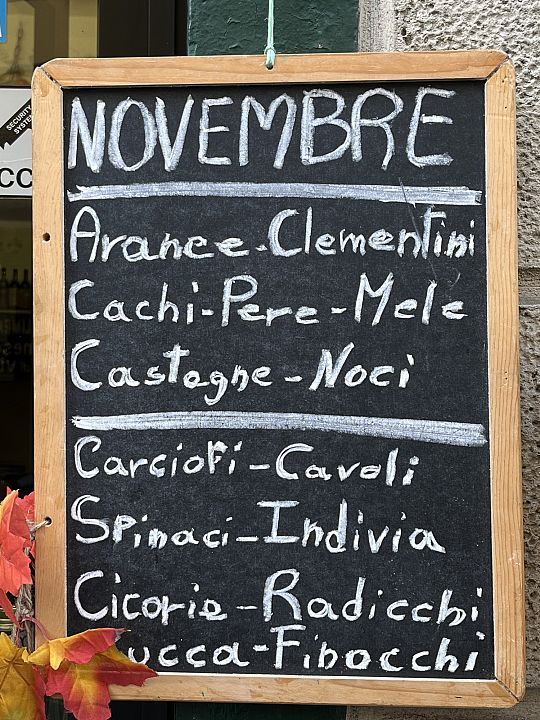 NOVEMBRE
Arance - Clementini
Cachi - Pere - Mele
Castegne - Noci
Carciofi - Cavoli
Spinaci - Indivia
Cicorie - Radicchi
ucca - Finocchi
SECURITY
SYSTEM
CC